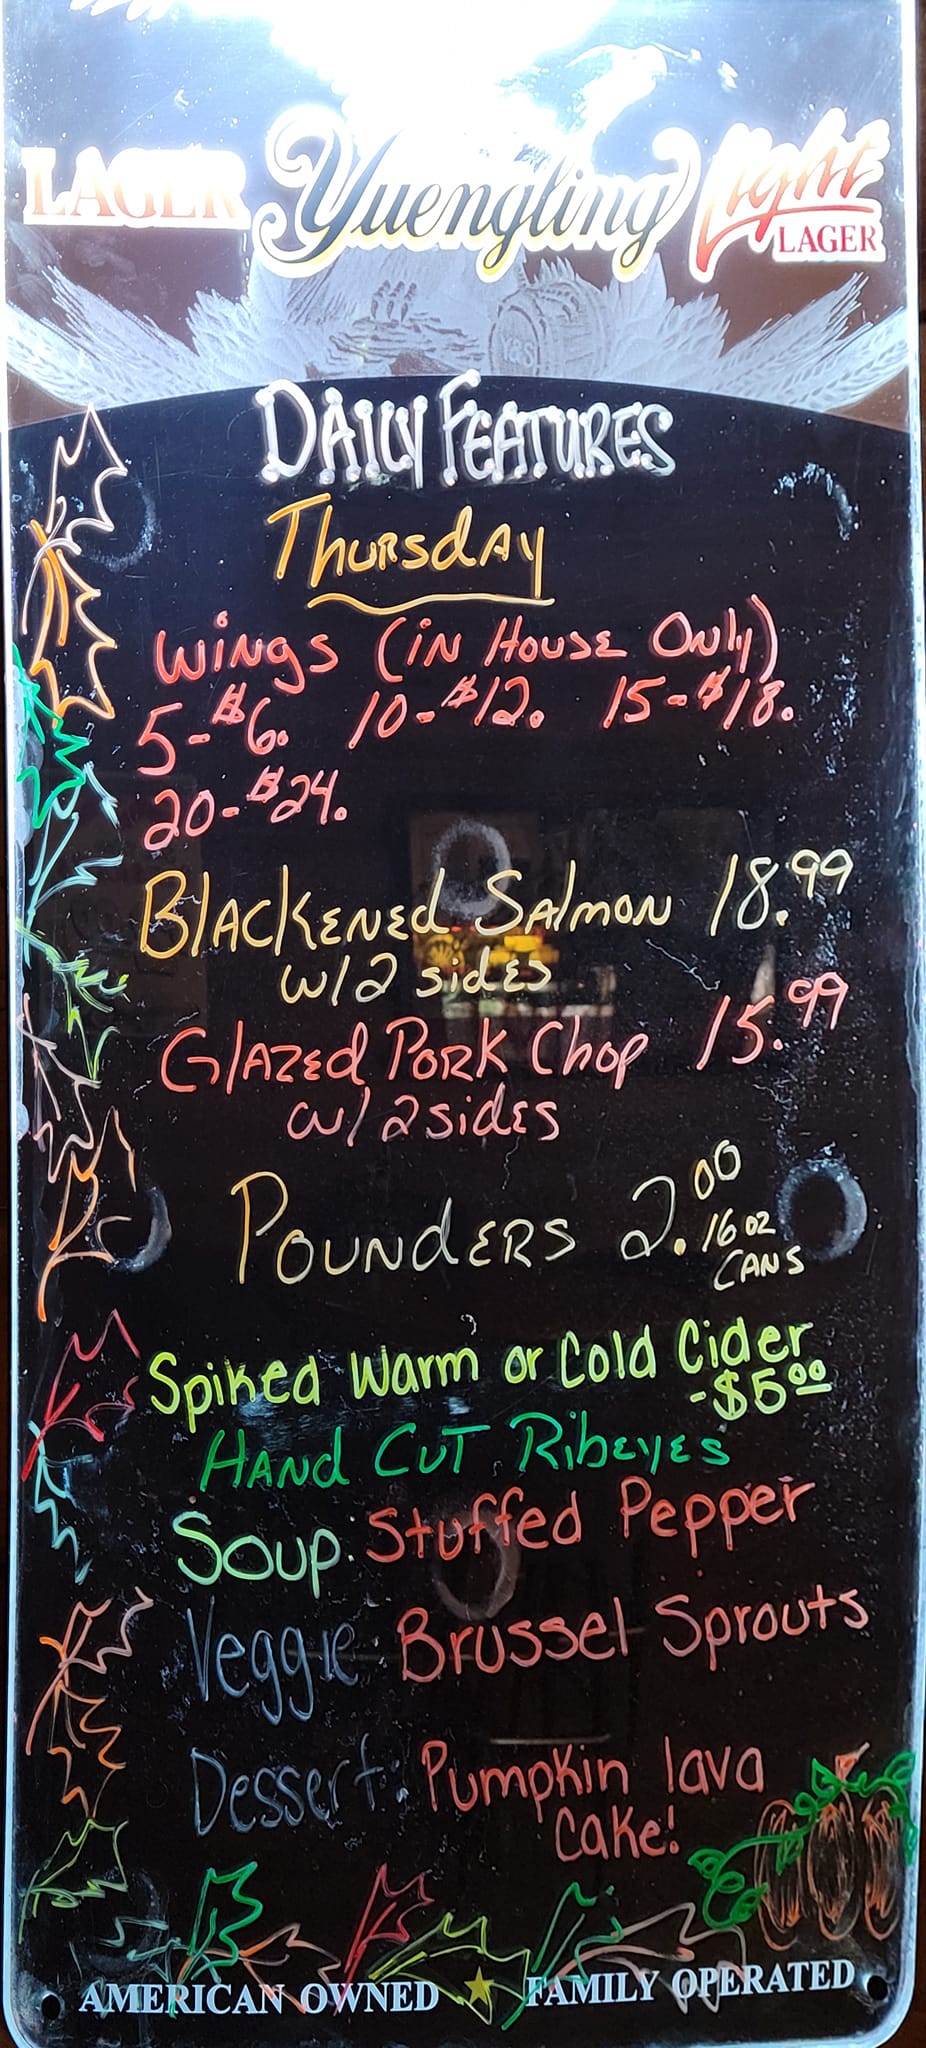 LAGER Yuengling Light LAGER
Y&S
DAILY FEATURES
THURSDAY
WINGS (IN HOUSE ONLY)
5-$6. 10-$12. 15-$18.
20-$24.
BLACKENED SALMON 18.99
W/2 SIDES
GLAZED PORK CHOP 15.99
W/2 SIDES
POUNDERS 2.00 16 OZ
CANS
Spiked Warm or Cold Cider
-$5.00
HAND CUT RIBEYES
Soup: Stuffed Pepper
Veggie Brussel Sprouts
Dessert: Pumpkin lava
cake!
AMERICAN OWNED ★ FAMILY OPERATED